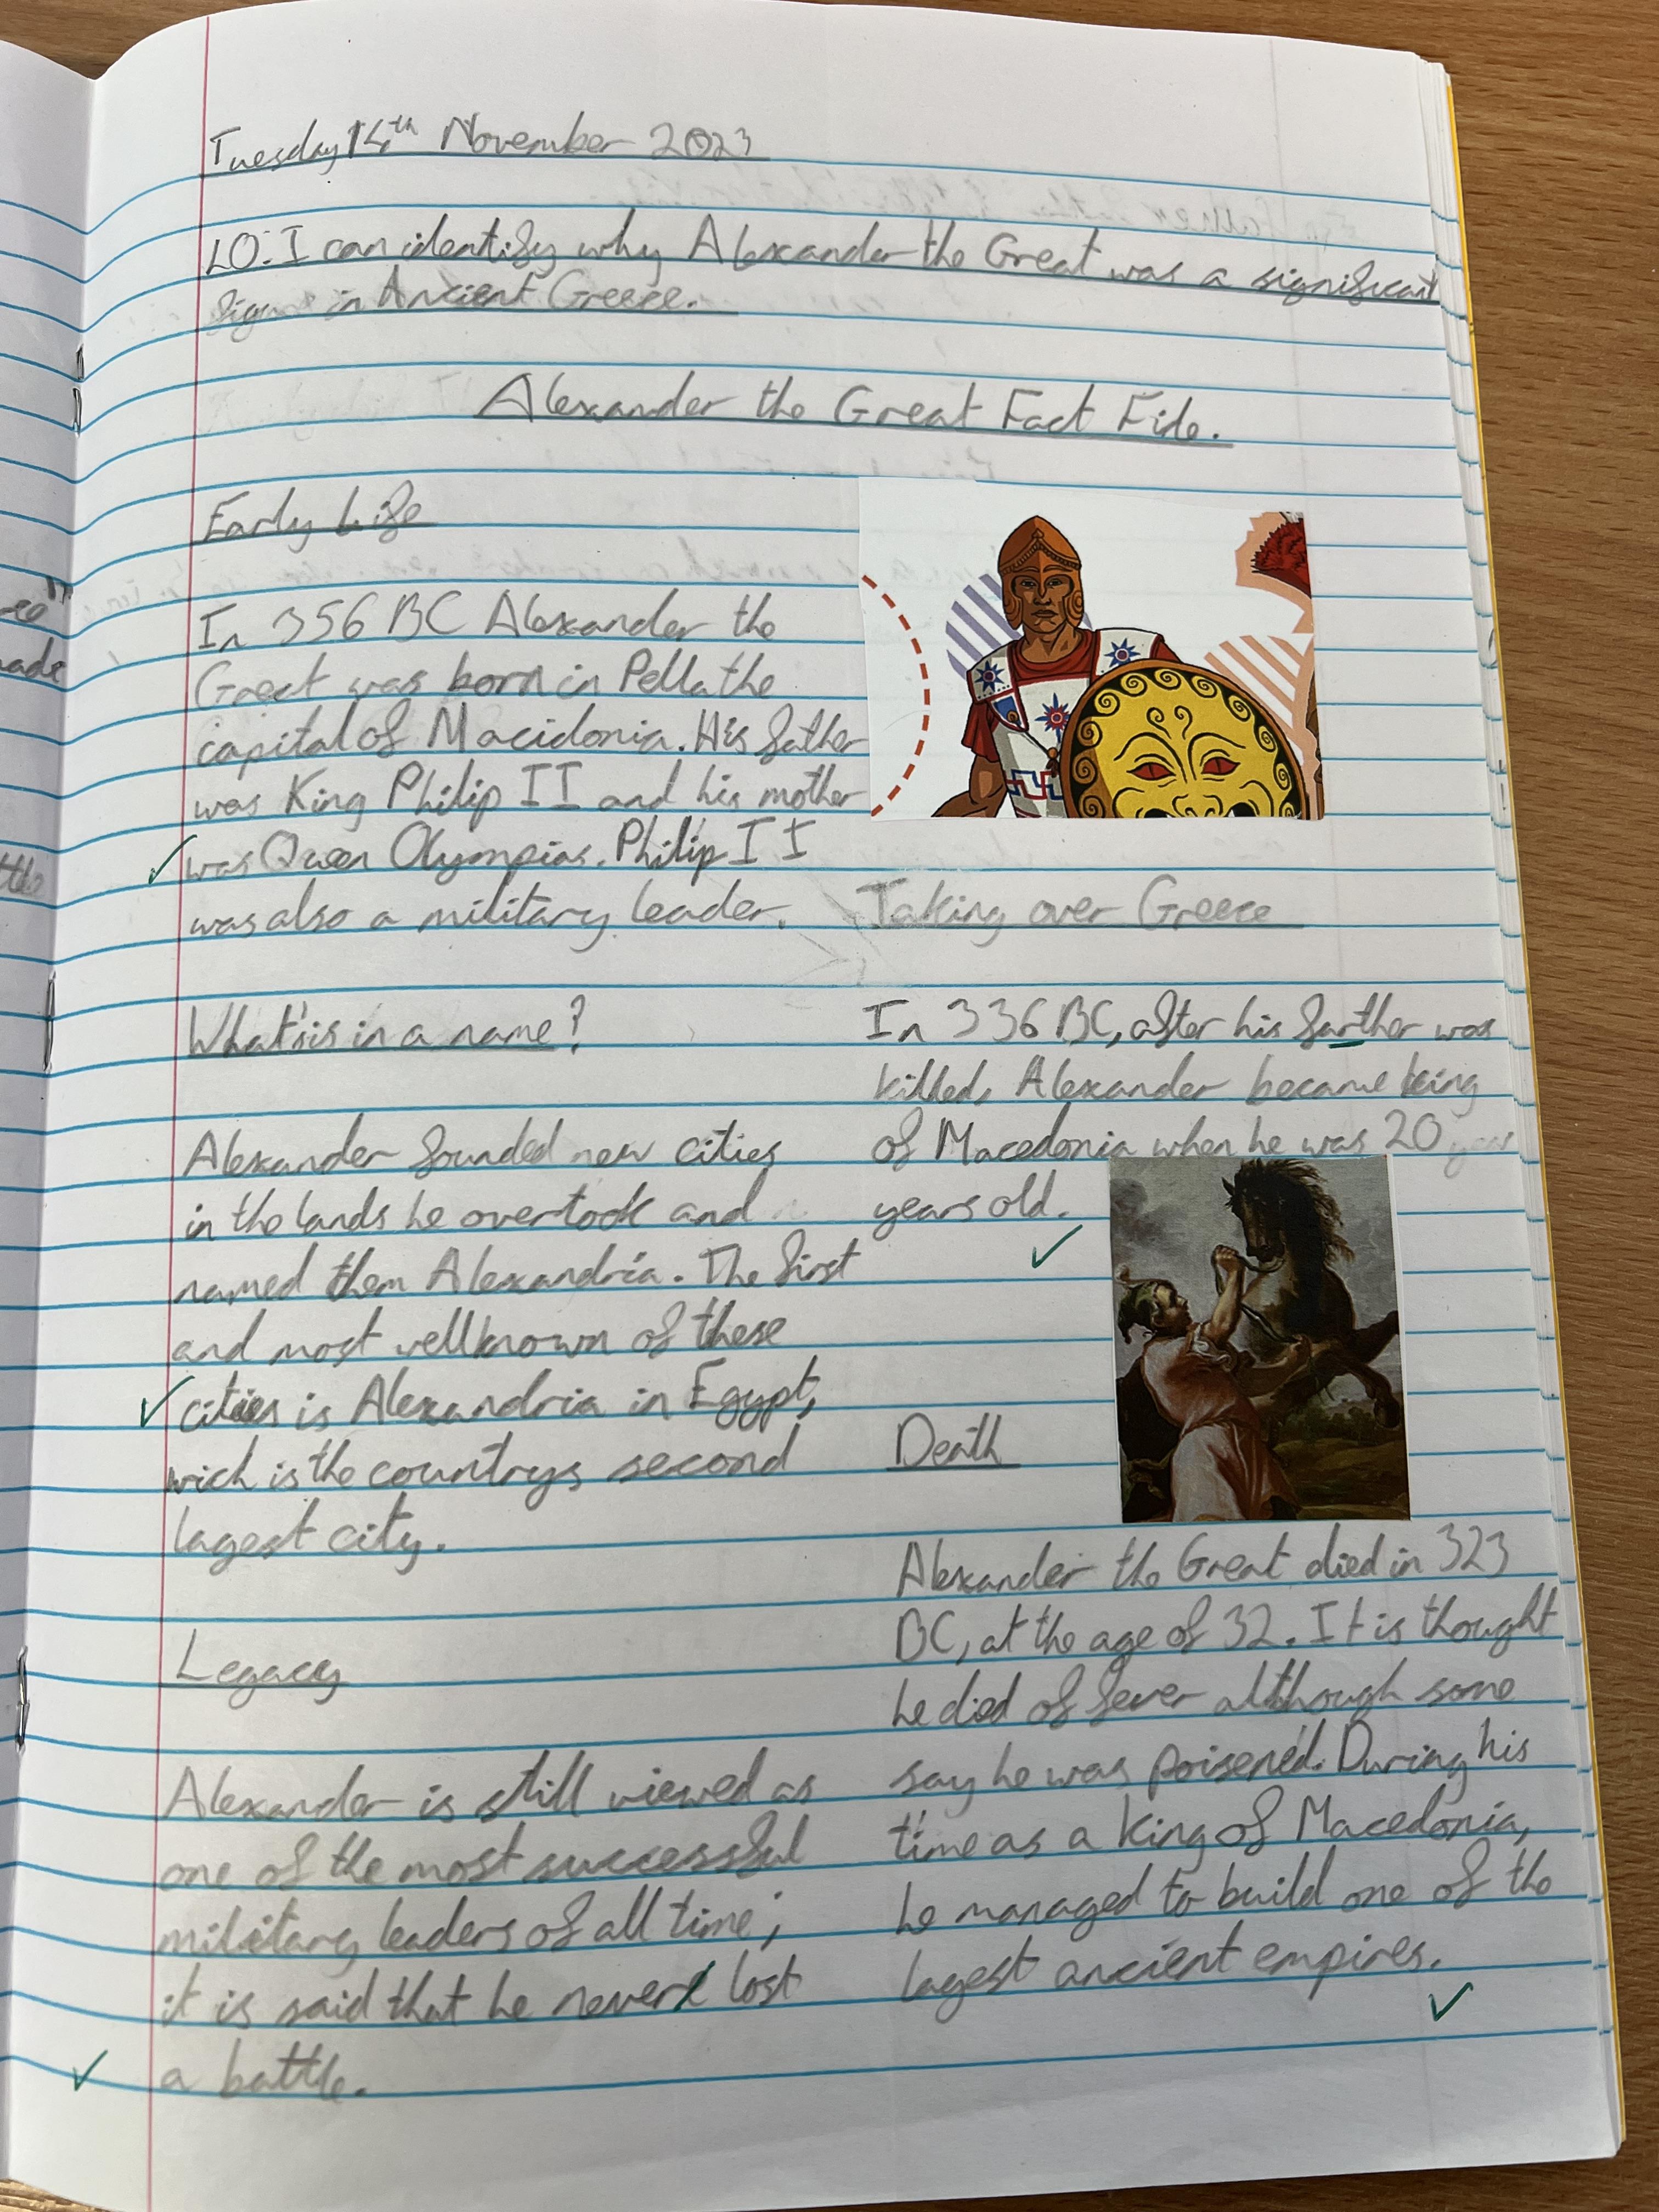 Tuesday 14th November 2023
LO: I can identify why Alexander the Great was a significant
figure in Ancient Greece.
Alexander the Great Fact File.
Early Life
In 356 BC Alexander the
Great was born in Pella the
capital of Macidonia. His father
was King Philip II and his mother
was Queen Olympias. Philip II
was also a military leader.
What's is in a name?
Alexander founded new cities
in the lands he overtook and
named them Alexandria. The first
and most wellknown of these
cities is Alexandria in Egypt,
wich is the countrys second
lagest city.
Legacy
Alexander is still viewed as
one of the most successful
military leaders of all time;
it is said that he never lost
a battle.
Taking over Greece
In 336 BC, after his farther was
killed, Alexander became king
of Macedonia when he was 20 year
years old.
Death
Alexander the Great died in 323
BC, at the age of 32. It is thought
he died of fever although some
say he was poisened. During his
time as a king of Macedonia,
he managed to build one of the
lagest ancient empires.
ee"
ade